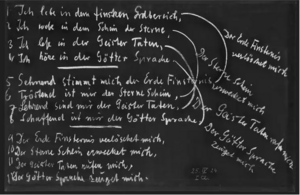 1 Ich lebe in dem finstren Erdbereich,
2 Ich webe in dem Schein der Sterne,
3 Ich lese in der Geister Taten,
4 Ich höre in der Götter Sprache
5 Sehnend stimmt mich der Erde Finsternis
6 Tröstend ist mir der Sterne Schein,
7 Lehrend sind mir der Geister Taten.
8 Schaffend ist mir der Götter Sprache
9 Der Erde Finsternis verlöschet mich,
10 Der Sterne Schein erwecket mich,
11 Der Geister Taten rufen mich,
12 Der Götter Sprache zeuget mich.
Der Erde Finsternis
verlöschet mich
Der Sterne Schein
erwecket mich
Der Geister Taten rufen mich
Der Götter Sprache
zeuget mich